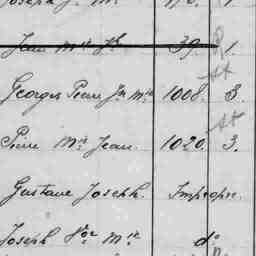 Joseph J. M.
Jean Mie Js 39. 1
Georges Pierre Jn Mie 1008. 3.
Pierre Mie Jean 1020. 3.
Gustave Joseph. Impropre.
Joseph Mie do